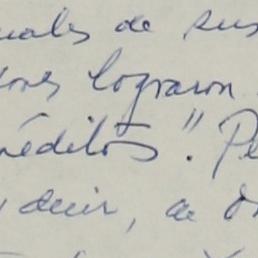 uales de sus
ores lograron
réditos". Pe
decir, de o